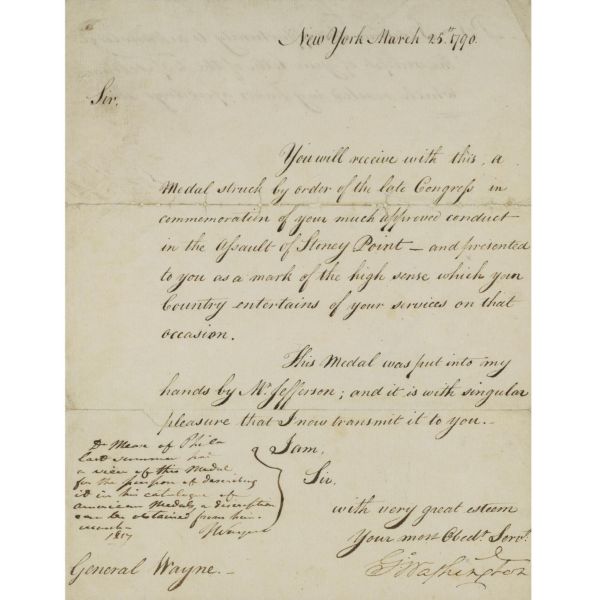 New York March 25th 1790.
Sir,
You will receive with this, a
Medal struck by order of the late Congress in
commemoration of your much approved conduct
in the Assault of Stoney Point — and presented
to you as a mark of the high sense which your
Country entertains of your services on that
occasion.
This Medal was put into my
hands by Mr. Jefferson; and it is with singular
pleasure that I now transmit it to you. —
I am,
Sir,
with very great esteem
Your most Obedt. Servt.
Go. Washington
Mease of Phila
last summer had
a view of this Medal
for the purpose of describing
it in his catalogue of
American Medals, a description
can be obtained from him.
1817
General Wayne. —